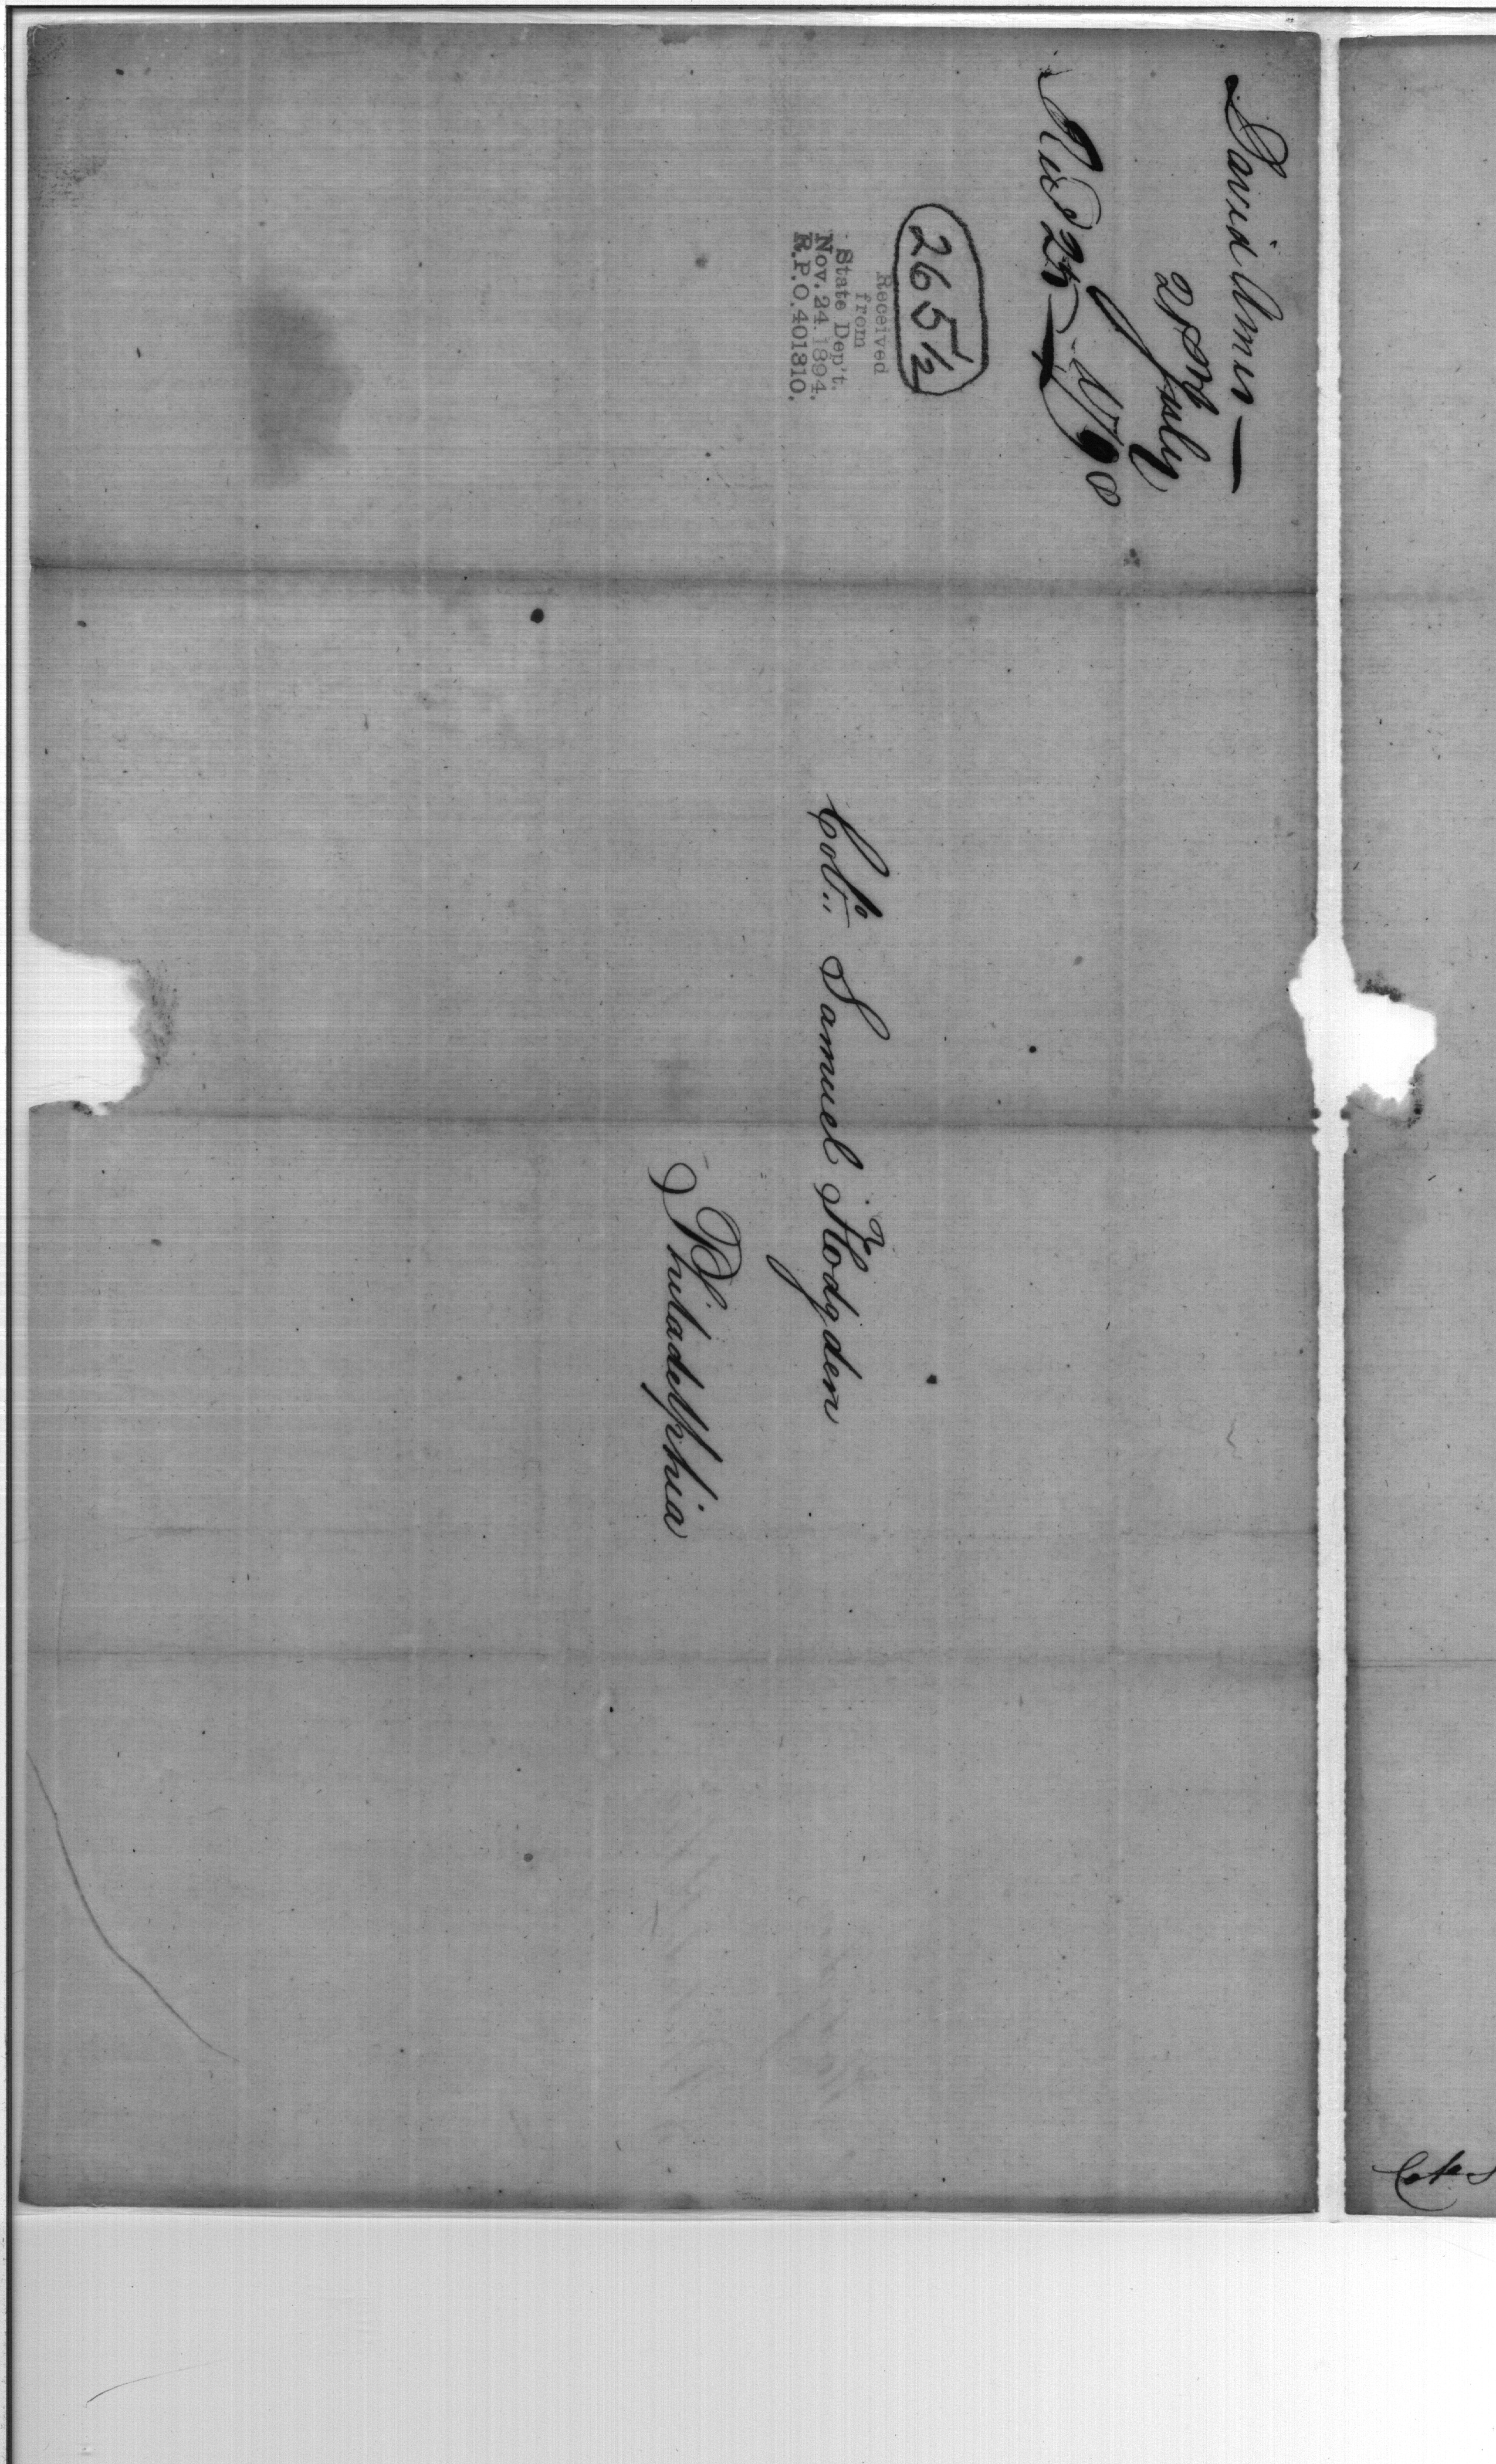 David Ames —
21st July
Rec'd 25 — 1790
265 1/2
Received
from
State Dep't.
Nov. 24. 1894.
R.P.O. 401310.
Colo. Samuel Hodgden
Philadelphia